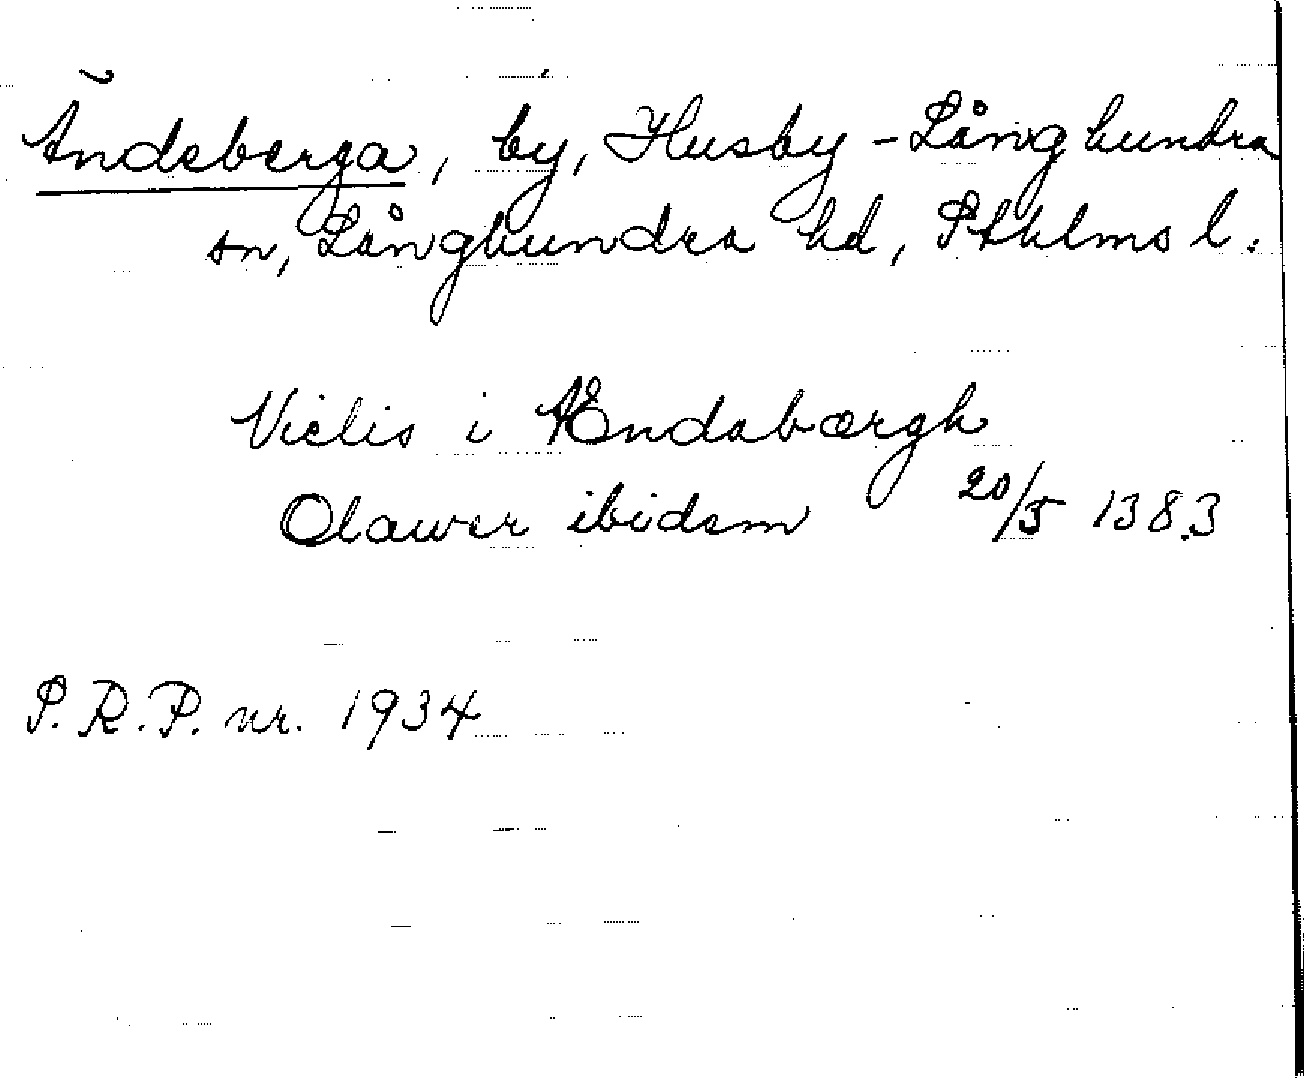 Ändeberga, by, Husby-Långhundra
sn, Långhundra hd, Sthlms l.
Viclis i Ændabærgh
Olawer ibidem 20/5 1383
S.R.P. nr. 1934